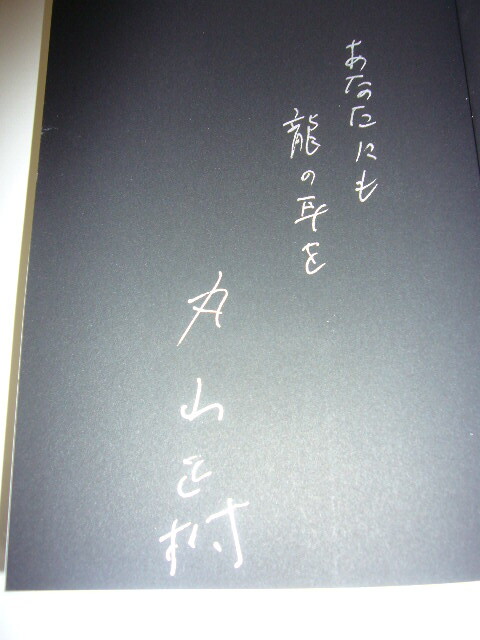 あなたにも
龍の耳を
丸山正樹